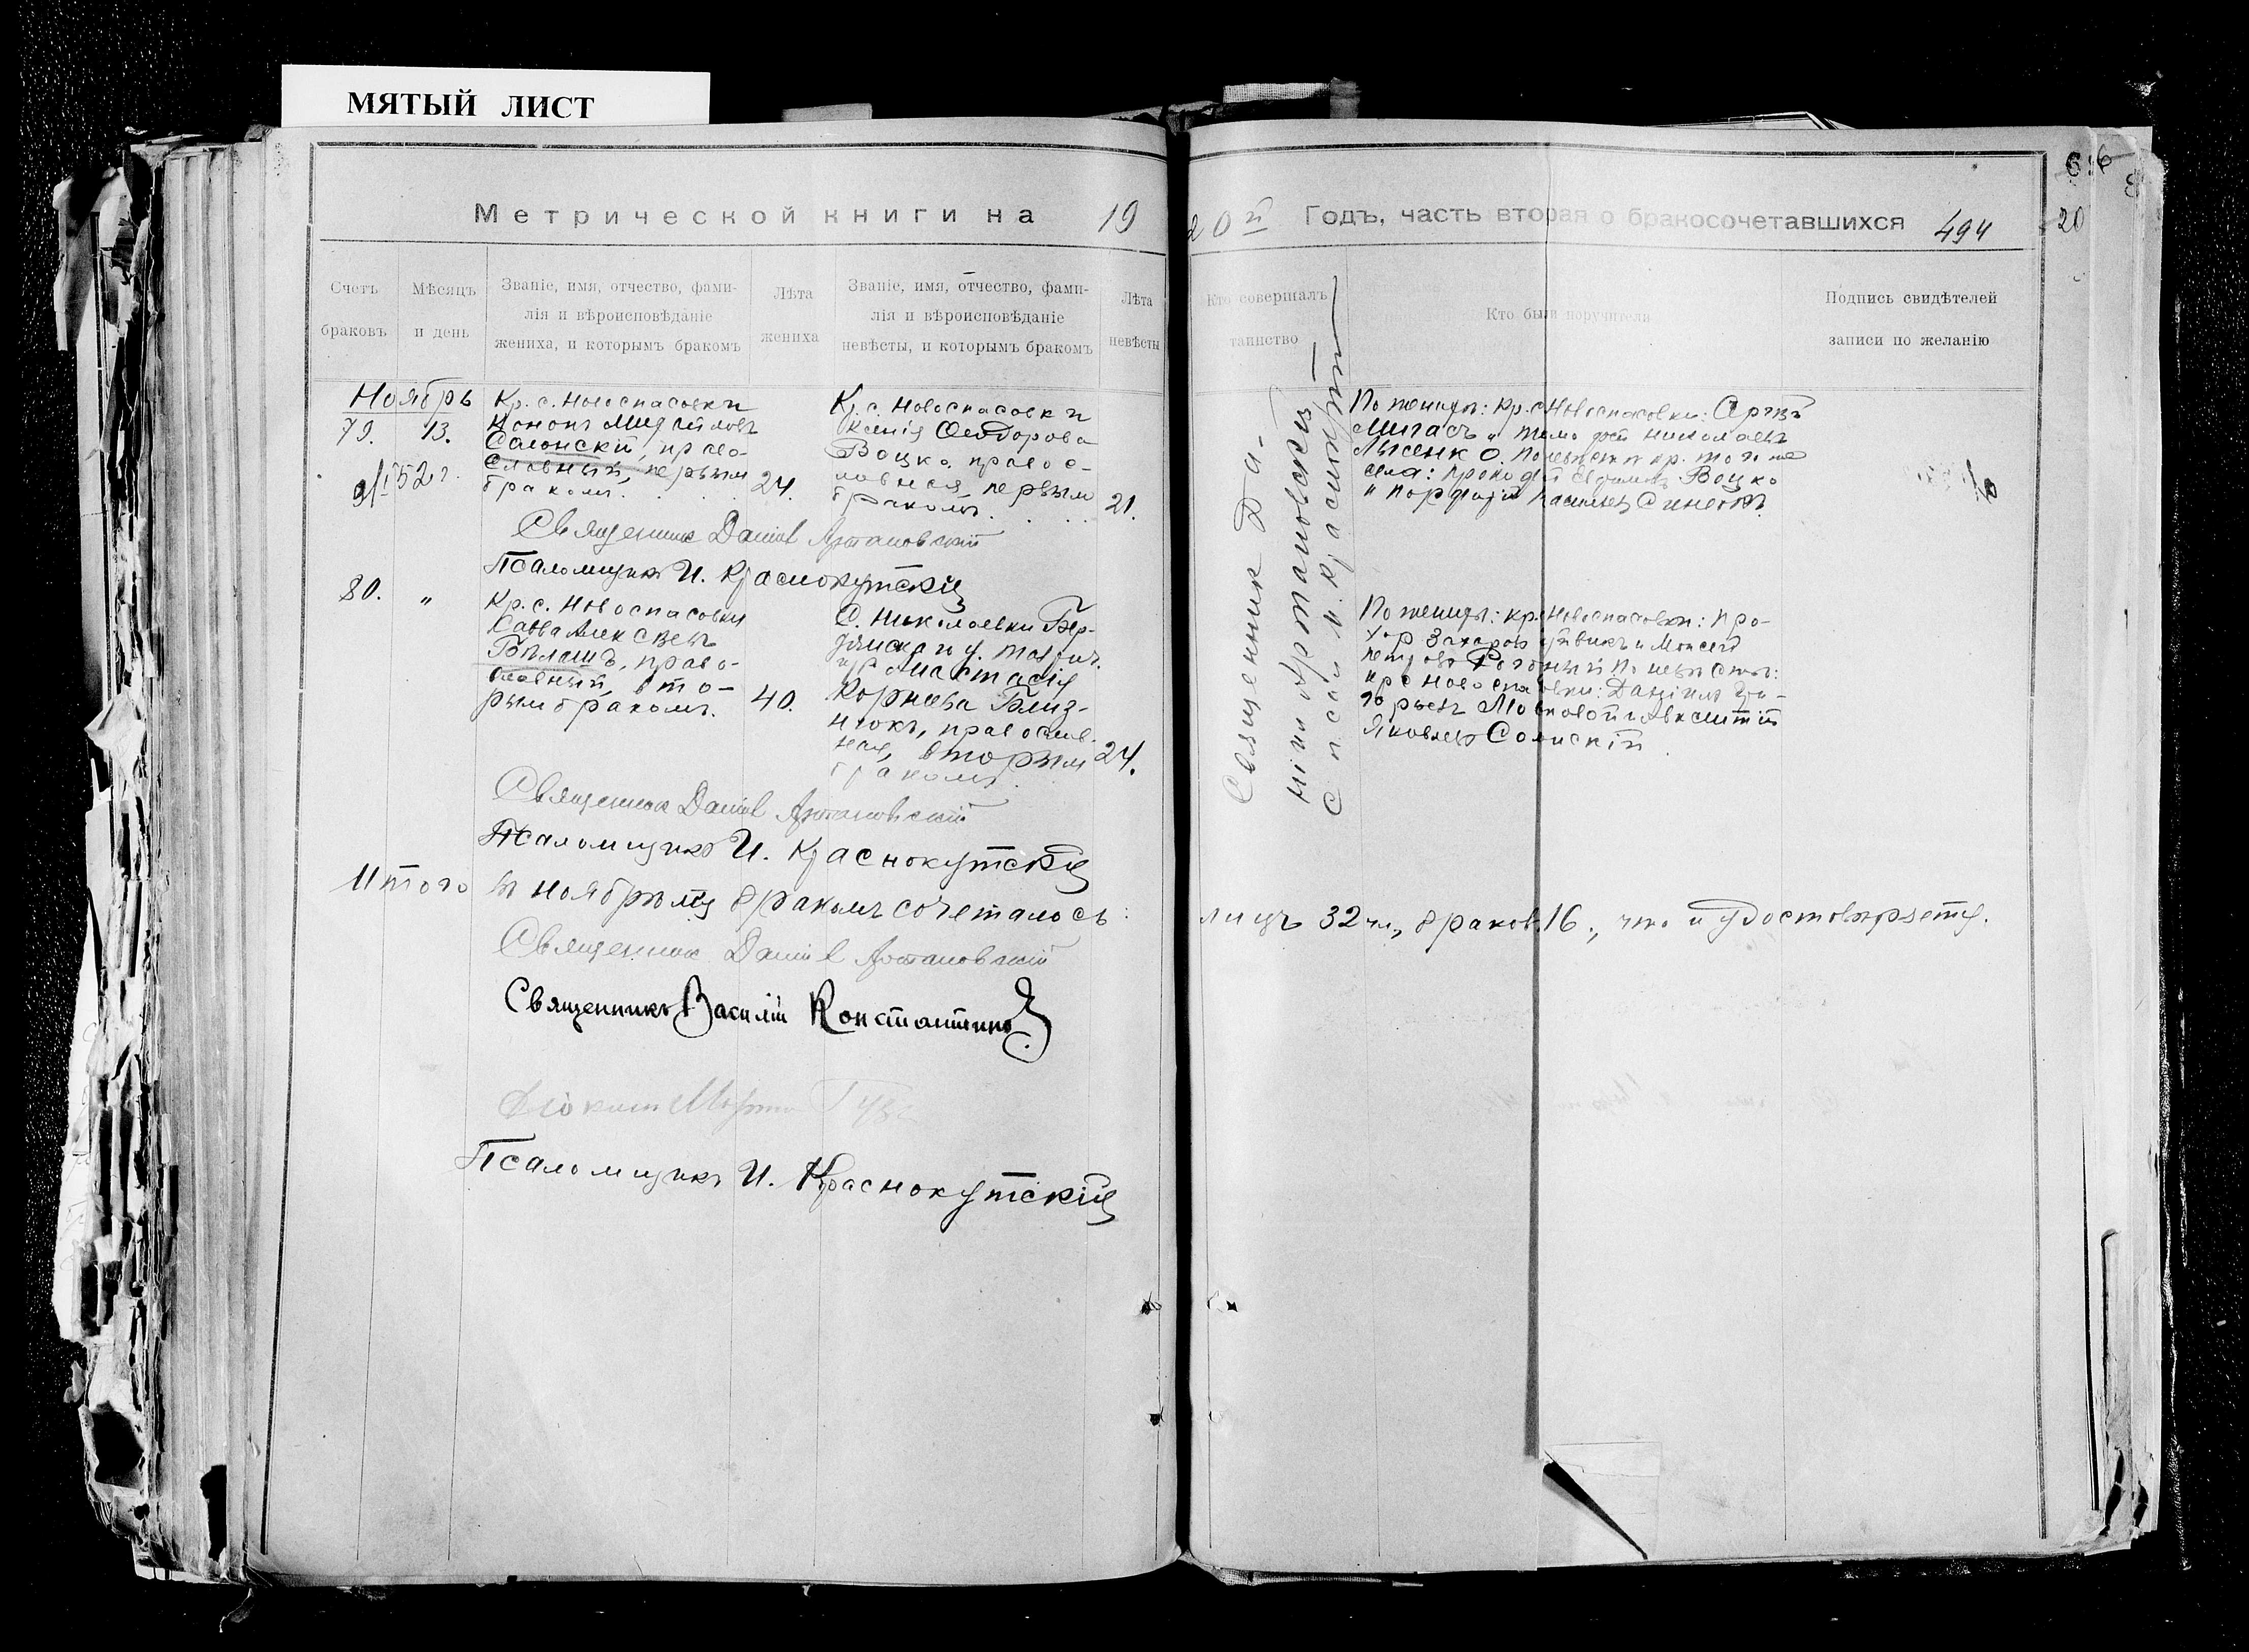 МЯТЫЙ ЛИСТ
Метрической книги на 19
20й Годъ, часть вторая о бракосочетавшихся 494
20
Счетъ браковъ
Мѣсяцъ и день
Званіе, имя, отчество, фами-
лія и вѣроисповѣданіе
жениха, и которымъ бракомъ
Лѣта
жениха
Званіе, имя, отчество, фами-
лія и вѣроисповѣданіе
невѣсты, и которымъ бракомъ
Лѣта
невѣсты
Кто совершалъ
таинство
Кто были поручители
Подпись свидѣтелей
записи по желанію
Ноябрь
79. 13.
52 г.
Кр. с. Новоспасовки
Кононъ Михайловъ
Салонскій, право-
славный, первым
браком. 24.
Кр. с. Новоспасовки
Ксенія Феодорова
Воцко, правос-
лавная, первым
браком. 21.
Священник Да-
ніил Артановскій
Псал. И. Краснокут
По женихѣ: кр. с. Новоспасовки:
Николаевъ
Лысенко. По невѣстѣ кр. того же
села: Воцко
Синегок
Священник Даніил Артановскій
Псаломщикъ И. Краснокутскій
80. "
Кр. с. Новоспасовки
Савва Алексѣевъ
Бѣлашъ, право-
славный, вто-
рым браком. 40.
С. Николаевки Бер-
дянскаго у. Таврич.
гур. Анастасія
Корнѣева Близ-
нюкъ, православ-
ная, вторым 24.
браком.
По женихѣ: кр. с. Новоспасовки: Про-
хор Захаров и Моисей
Петровъ По невѣстѣ:
кр. с. Новоспасовки: Даніилъ Гри-
горьевъ и Авксентій
Яковлевъ Солонскій
Священник Даніил Артановскій
Псаломщикъ И. Краснокутскій
Итого въ ноябрѣ мц браком сочеталось:
лицъ 32 чл, браков. 16., что и удостовѣряетъ.
Священник Даніил Артановскій
Священникъ Василій Константинов
Діакон
Псаломщикъ И. Краснокутскій